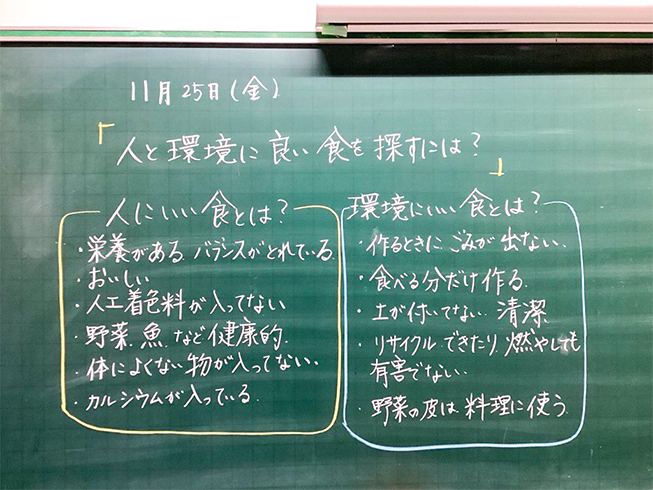 11月25日(金)
「人と環境に良い食を探すには？」
人にいい食とは？
・栄養がある バランスがとれている
・おいしい
・人工着色料が入ってない
・野菜、魚 など健康的
・体によくない物が入ってない。
・カルシウムが入っている
環境にいい食とは？
・作るときに ごみが 出ない
・食べる分だけ作る
・土が付いてない 清潔
・リサイクル できたり 燃やしても
有害でない
・野菜の皮は 料理に使う